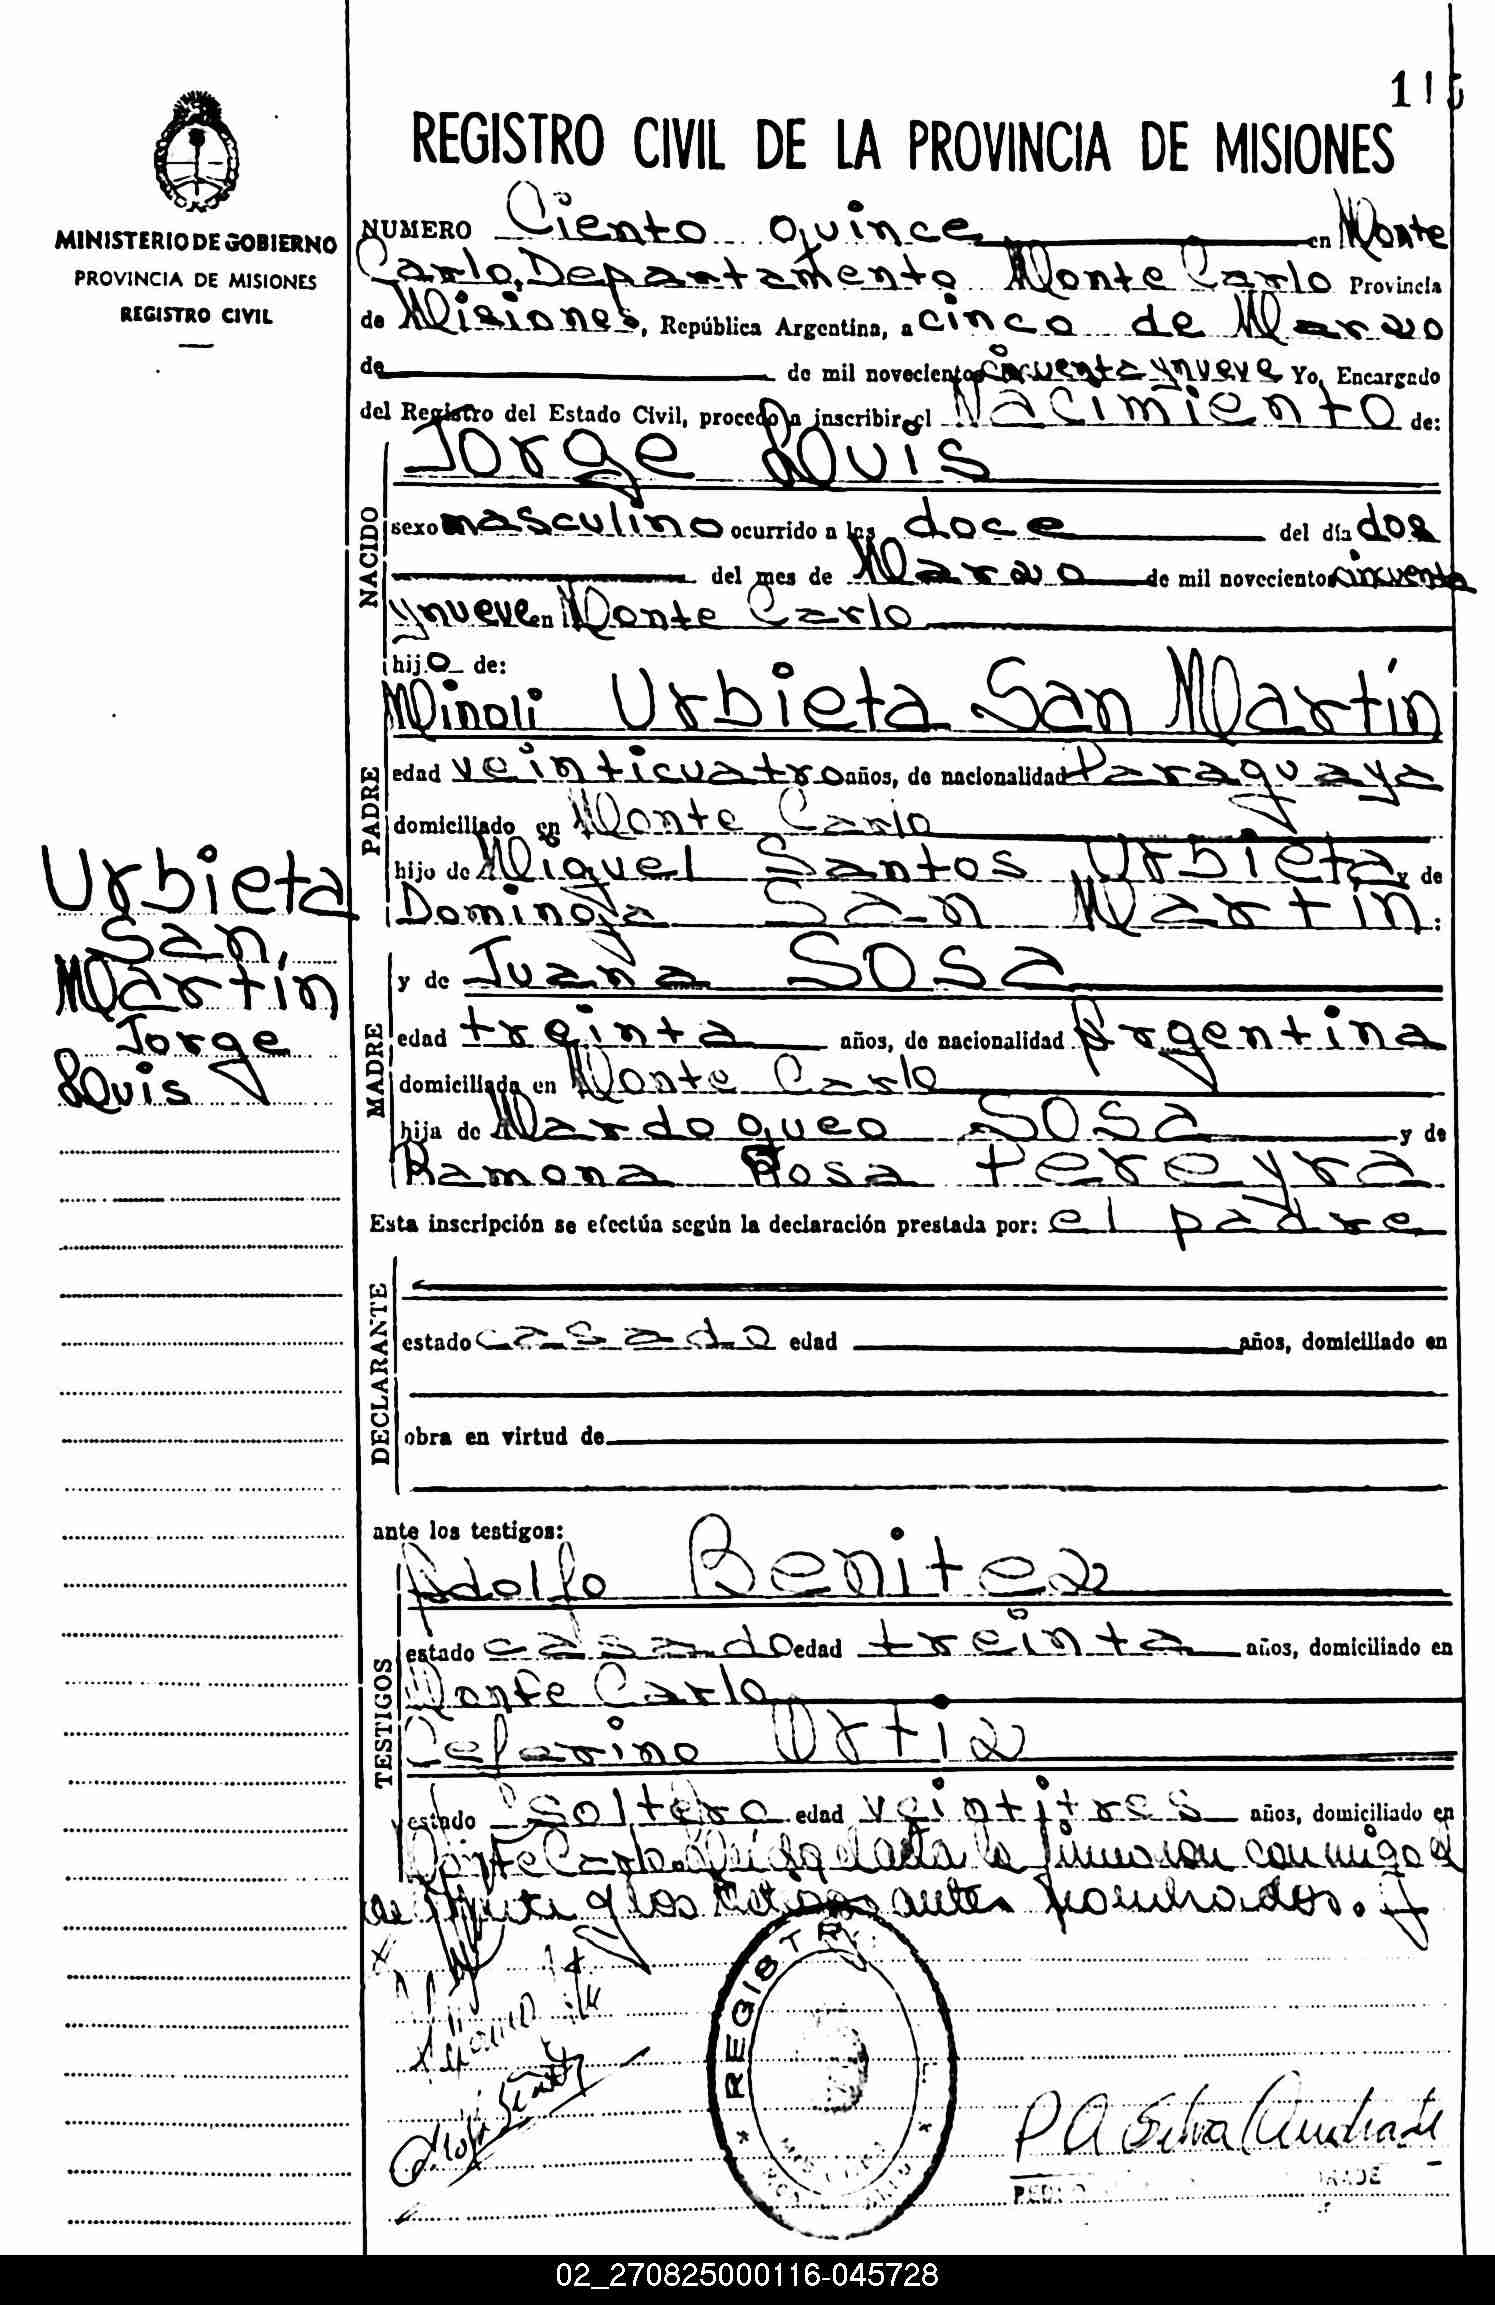 115
REGISTRO CIVIL DE LA PROVINCIA DE MISIONES
MINISTERIO DE GOBIERNO
PROVINCIA DE MISIONES
REGISTRO CIVIL
NUMERO Ciento quince en Monte
Carlo, Departamento Monte Carlo Provincia
de Misiones, República Argentina, a cinco de Marzo
de de mil novecientos cincuenta y nueve Yo, Encargado
del Registro del Estado Civil, procedo a inscribir el Nacimiento de:
NACIDO
Jorge Luis
sexo masculino ocurrido a las doce del día dos
del mes de Marzo de mil novecientos cincuenta
y nueve en Monte Carlo
hijo de:
PADRE
Minoli Urbieta San Martín
edad veinticuatro años, de nacionalidad Paraguaya
domiciliado en Monte Carlo
hijo de Miguel Santos Urbieta y de
Dominga San Martín:
Urbieta
San
Martín
Jorge
Luis
MADRE
y de Juana Sosa
edad treinta años, de nacionalidad Argentina
domiciliada en Monte Carlo
hija de Mardoqueo Sosa y de
Ramona Rosa Pereyra
Esta inscripción se efectúa según la declaración prestada por: el padre
DECLARANTE
estado casado edad años, domiciliado en
obra en virtud de
ante los testigos:
TESTIGOS
Adolfo Benitez
estado casado edad treinta años, domiciliado en
Monte Carlo
Ceferino Ortiz
estado Soltero edad veintitres años, domiciliado en
Monte Carlo. Leída el acta la firmaron conmigo el
y los testigos antes nombrados.
REGISTR
P A Silva Andrade
02_270825000116-045728